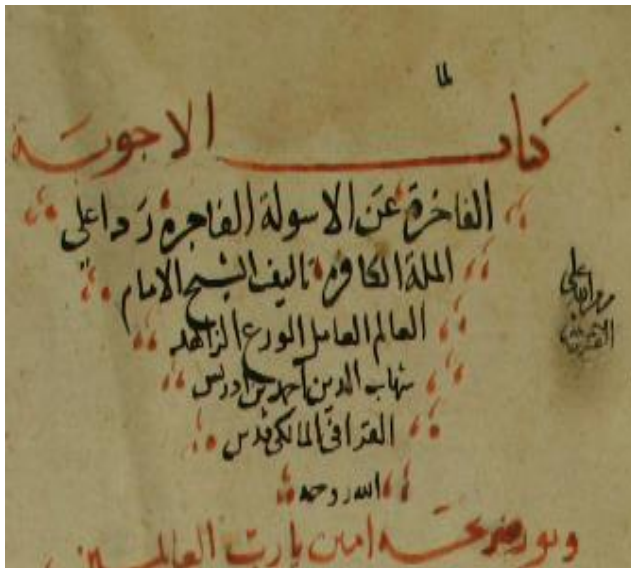 كتاب الاجوبة
الفاخرة عن الاسولة الفاجرة ردا على
الملة الكافرة تاليف الشيخ الامام
العالم العامل الورع الزاهد
شهاب الدين احمد بن ادريس
القرافي المالكي قدس
الله روحه
ونور ضريحه امين يا رب العالمين